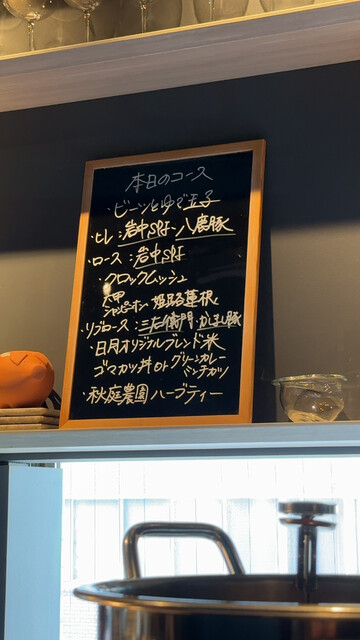 本日のコース
・ビーツとゆで玉子
・ヒレ:岩中SPF・八鹿豚
・ロース:岩中SPF
・クロックムッシュ
シャンピニオン 姫路蓮根
・リブロース:三左衛門・かずさ豚
・日月オリジナルブレンド米
ゴマカツ丼 or グリーンカレー
メンチカツ
・秋庭農園ハーブティー